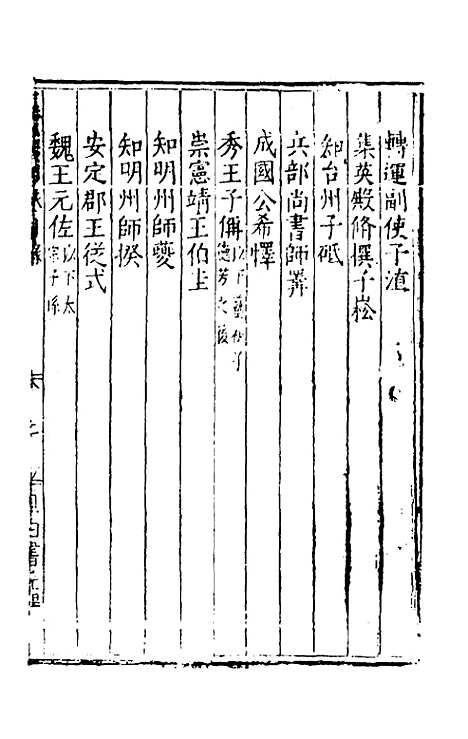 轉運副使子淔
集英殿修撰子崧
知台州子砥
兵部尚書師𢍰
成國公希懌
秀王子偁以下藝祖子德芳之後
崇憲靖王伯圭
知明州師夔
知明州師揆
安定郡王從式
魏王元佐以下太宗子孫